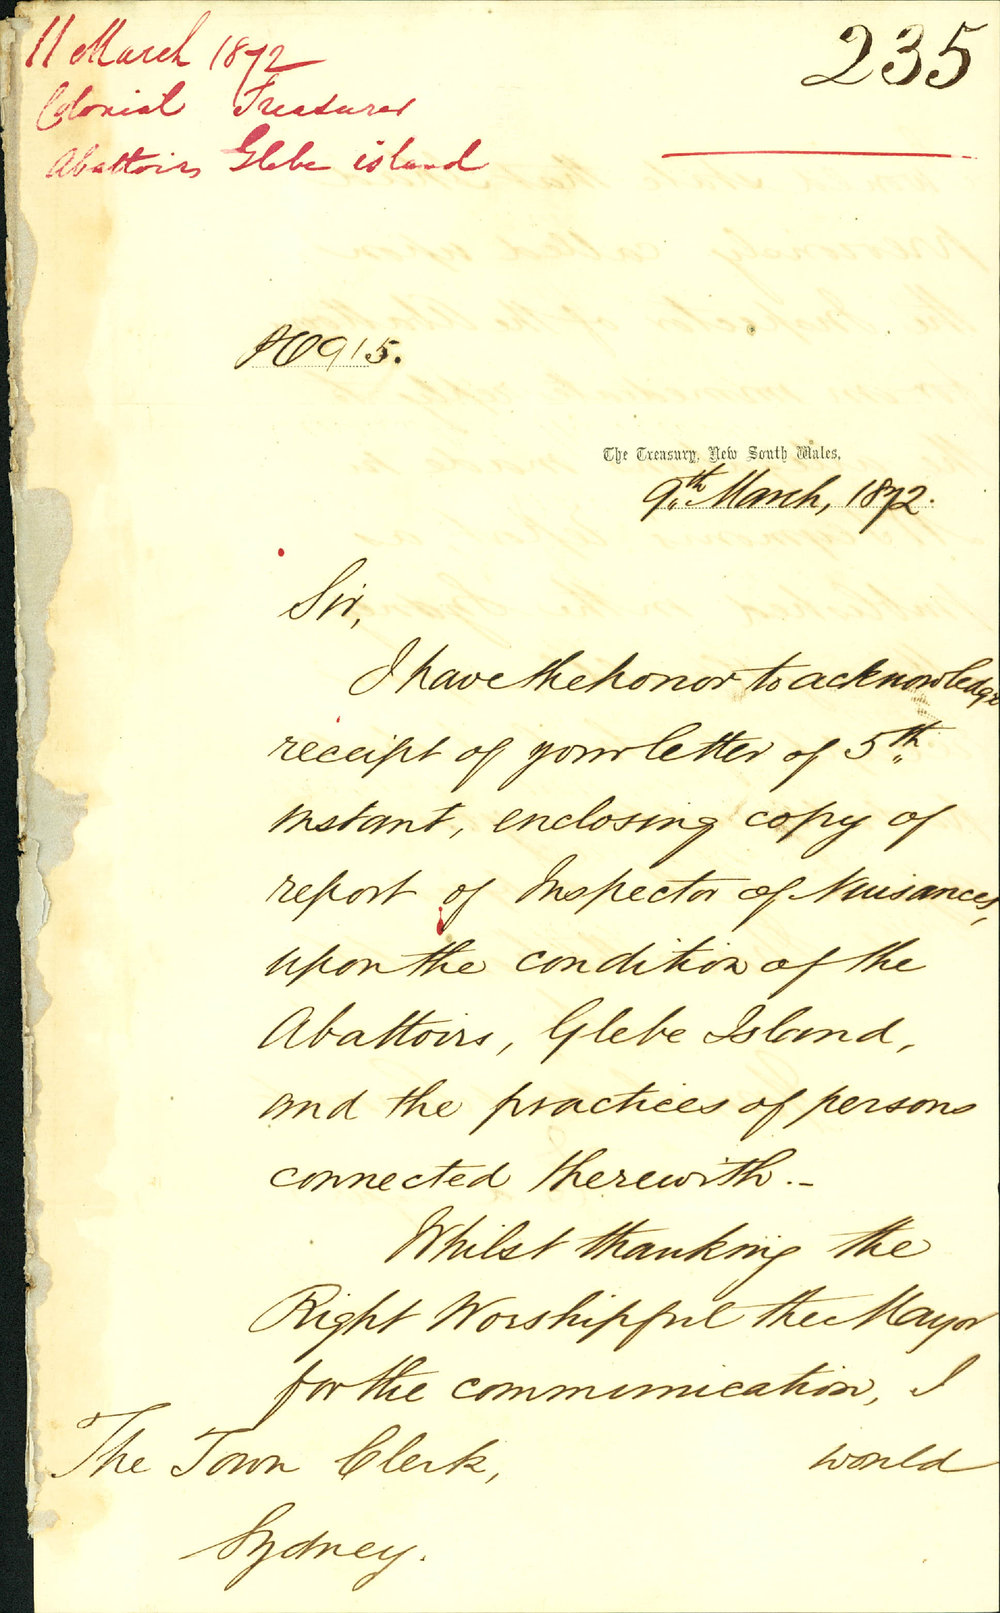 11 March 1872
Colonial Treasurer
Abattoirs Glebe island
235
915.
The Treasury, New South Wales,
9th March, 1872.
Sir,
I have the honor to acknowledge
receipt of your letter of 5th
instant, enclosing copy of
report of Inspector of Nuisances,
upon the condition of the
Abattoirs, Glebe Island,
and the practices of persons
connected therewith.-
Whilst thanking the
Right Worshipful the Mayor
for the communication, I
would
The Town Clerk,
Sydney.